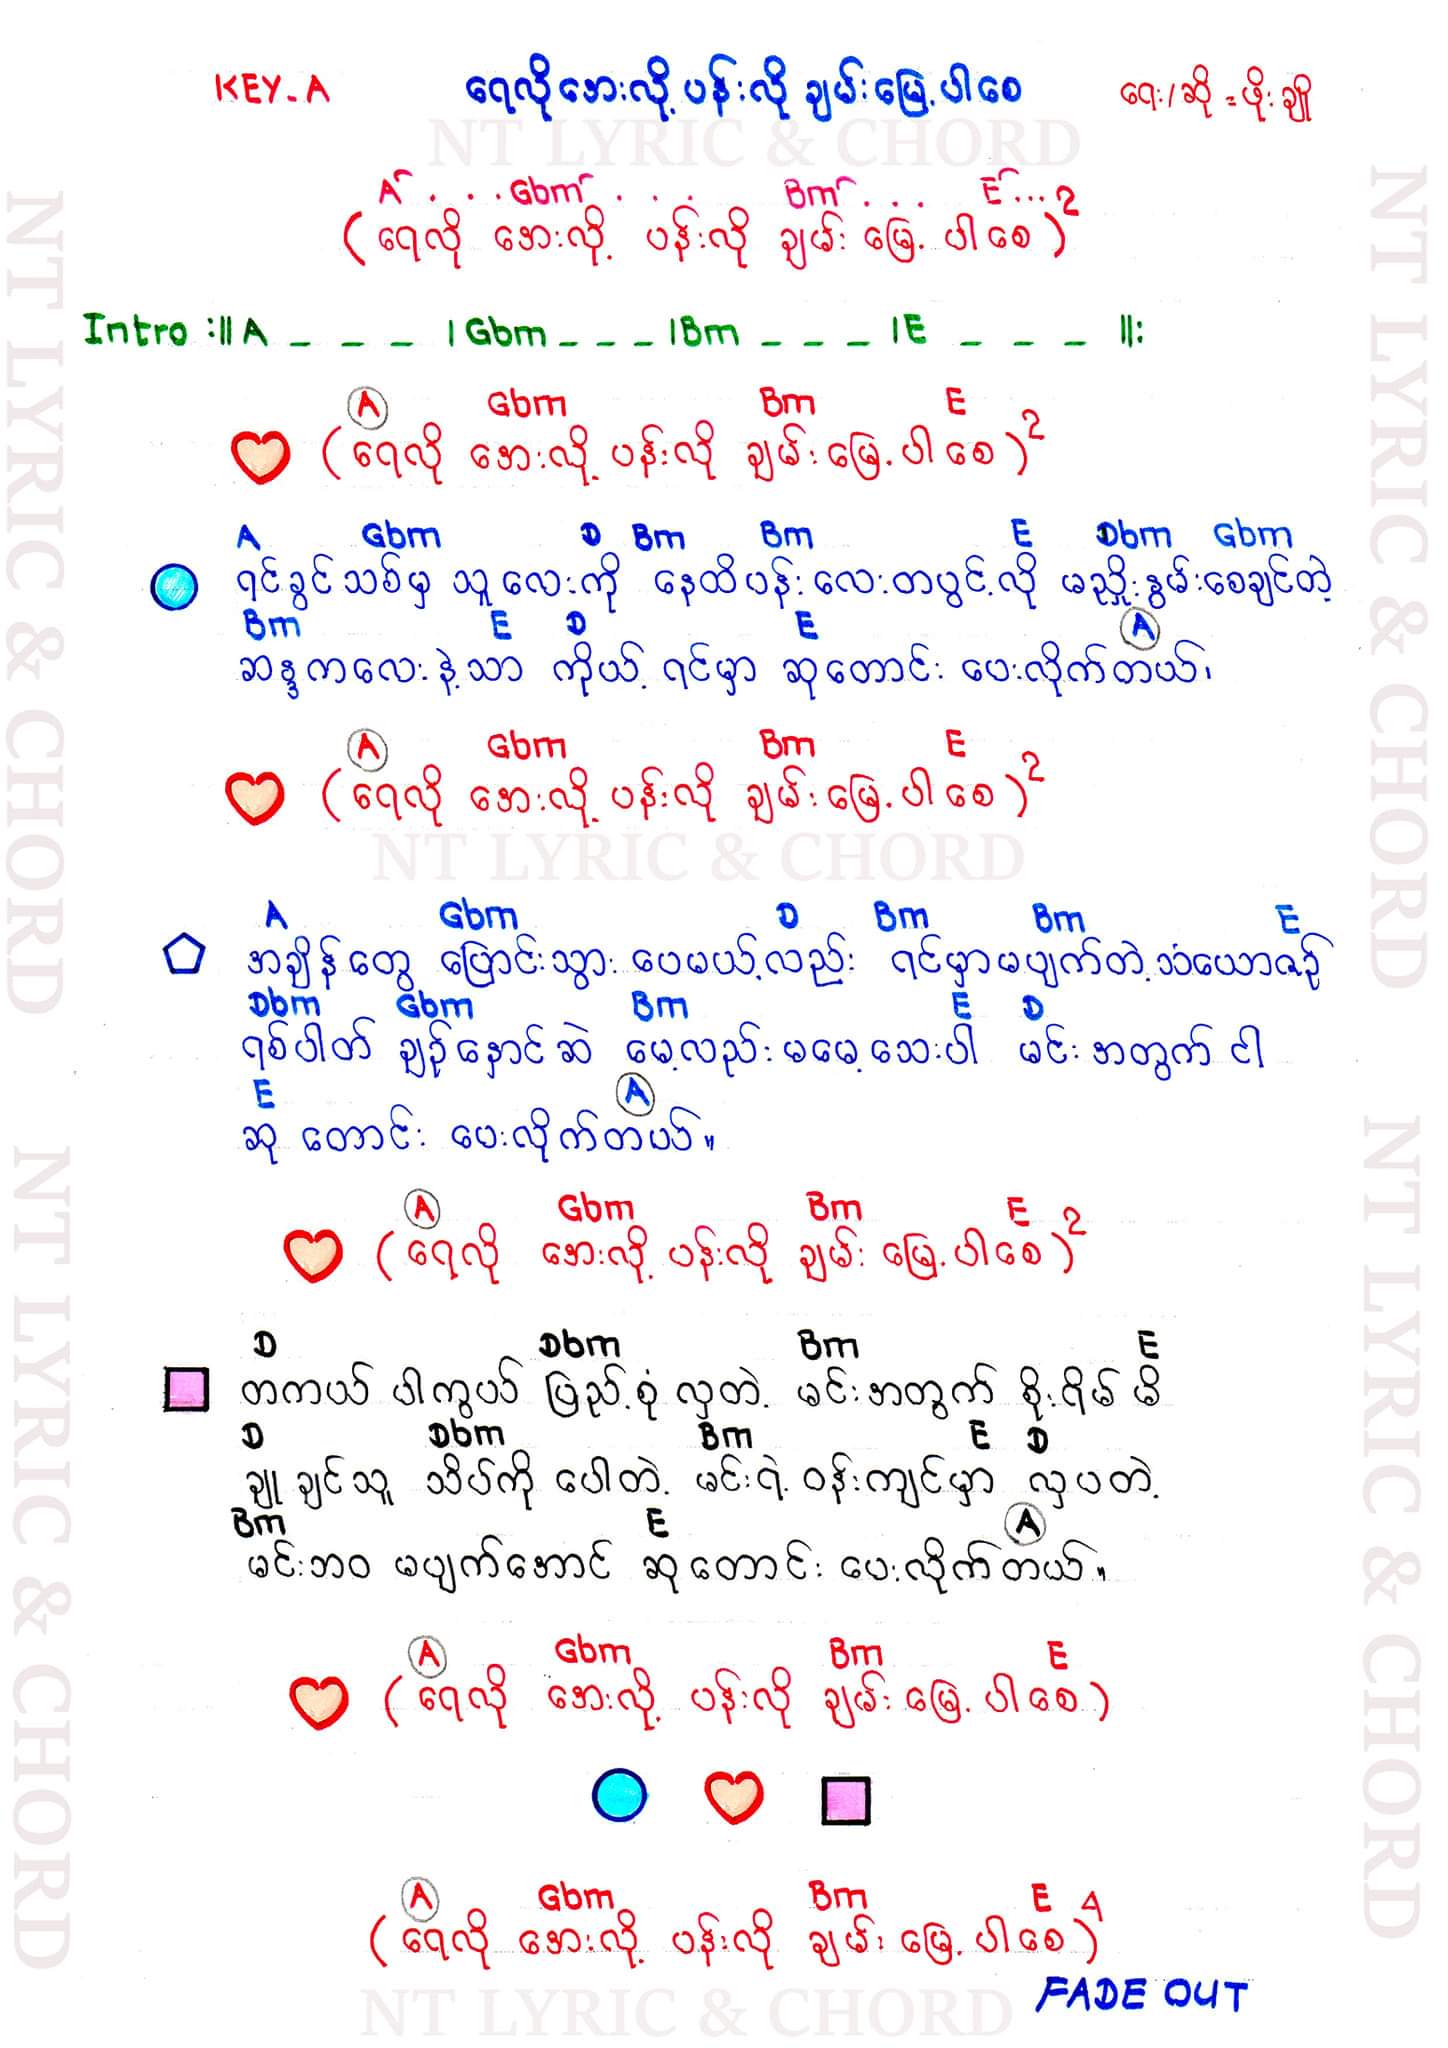 KEY-A ရေလိုအေးလို့ ပန်းလို ချမ်းမြေ့ပါစေ ရေး/ဆို = ဖိုးချို
NT LYRIC & CHORD
A . . . Gbm . . . Bm . . . E . . .
(ရေလို အေးလို့ ပန်းလို ချမ်းမြေ့ပါစေ)2
Intro :|| A _ _ _ | Gbm _ _ _ | Bm _ _ _ | E _ _ _ ||:
A Gbm Bm E
(ရေလို အေးလို့ ပန်းလို ချမ်းမြေ့ပါစေ)2
A Gbm D Bm Bm E Dbm Gbm
ရင်ခွင်သစ်မှ သူလေးကို နေထိပန်းလေးတပွင့်လို မညှိုးနွမ်းစေချင်တဲ့
Bm E D E A
ဆန္ဒကလေးနဲ့သာ ကိုယ့်ရင်မှာ ဆုတောင်း ပေးလိုက်တယ်၊
A Gbm Bm E
(ရေလို အေးလို့ ပန်းလို ချမ်းမြေ့ပါစေ)2
NT LYRIC & CHORD
A Gbm D Bm Bm E
အချိန်တွေ ပြောင်းသွားပေမယ့်လည်း ရင်မှာမပျက်တဲ့သံယောဇဉ်
Dbm Gbm Bm E D
ရစ်ပါတ် ချဉ်နှောင်ဆဲ မေ့လည်းမမေ့သေးပါ မင်းအတွက် ငါ
E A
ဆု တောင်း ပေးလိုက်တယ်။
A Gbm Bm E
(ရေလို အေးလို့ ပန်းလို ချမ်းမြေ့ပါစေ)2
D Dbm Bm E
တကယ် ပါကွယ် ပြည့်စုံ လှတဲ့ မင်းအတွက် စိုးရိမ် မိ
D Dbm Bm E D
ချူချင်သူ သိပ်ကို ပေါတဲ့ မင်းရဲ့ ဝန်းကျင်မှာ လှပတဲ့
Bm E A
မင်းဘဝ မပျက်အောင် ဆုတောင်း ပေးလိုက်တယ်။
A Gbm Bm E
(ရေလို အေးလို့ ပန်းလို ချမ်းမြေ့ပါစေ)
A Gbm Bm E
(ရေလို အေးလို့ ပန်းလို ချမ်းမြေ့ပါစေ)4
FADE OUT
NT LYRIC & CHORD
NT LYRIC & CHORD
NT LYRIC & CHORD
NT LYRIC & CHORD
NT LYRIC & CHORD